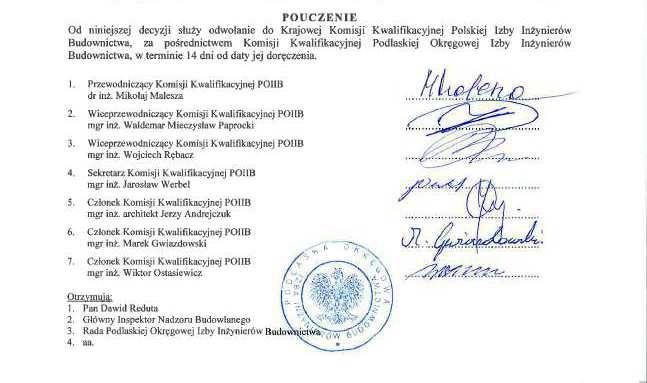 POUCZENIE
Od niniejszej decyzji służy odwołanie do Krajowej Komisji Kwalifikacyjnej Polskiej Izby Inżynierów
Budownictwa, za pośrednictwem Komisji Kwalifikacyjnej Podlaskiej Okręgowej Izby Inżynierów
Budownictwa, w terminie 14 dni od daty jej doręczenia.
1. Przewodniczący Komisji Kwalifikacyjnej POIIB
dr inż. Mikołaj Malesza
2. Wiceprzewodniczący Komisji Kwalifikacyjnej POIIB
mgr inż. Waldemar Mieczysław Paprocki
3. Wiceprzewodniczący Komisji Kwalifikacyjnej POIIB
mgr inż. Wojciech Rębacz
4. Sekretarz Komisji Kwalifikacyjnej POIIB
mgr inż. Jarosław Werbel
5. Członek Komisji Kwalifikacyjnej POIIB
mgr inż. architekt Jerzy Andrejczuk
6. Członek Komisji Kwalifikacyjnej POIIB
mgr inż. Marek Gwiazdowski
M. Gwiazdowski
7. Członek Komisji Kwalifikacyjnej POIIB
mgr inż. Wiktor Ostasiewicz
PODLASKA OKRĘGOWA
IZBA INŻYNIERÓW BUDOWNICTWA
Otrzymują:
1. Pan Dawid Reduta
2. Główny Inspektor Nadzoru Budowlanego
3. Rada Podlaskiej Okręgowej Izby Inżynierów Budownictwa
4. aa.